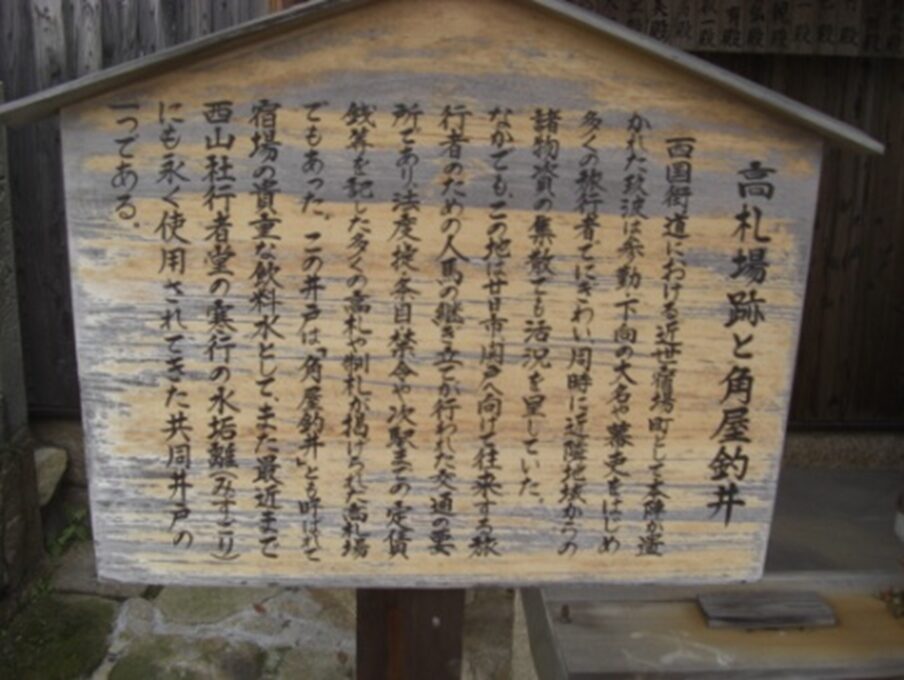 高札場跡と角屋釣井
西国街道における近世宿場町として本陣が置
かれた玖波は参勤下向の大名や幕吏をはじめ
多くの旅行者でにぎわい同時に近隣地域からの
諸物資の集散でも活況を呈していた。
なかでも、この地は廿日市・関戸へ向けて往来する旅
行者のための人馬の継ぎ立てが行われた交通の要
所であり、法度・掟・条目・禁令や次駅までの定賃
銭等を記した多くの高札や制札が掲げられた高札場
でもあった。この井戸は「角屋釣井」とも呼ばれて
宿場の貴重な飲料水として、また最近まで
西山社行者堂の寒行の水垢離(みずごり)
にも永く使用されてきた共同井戸の
一つである。